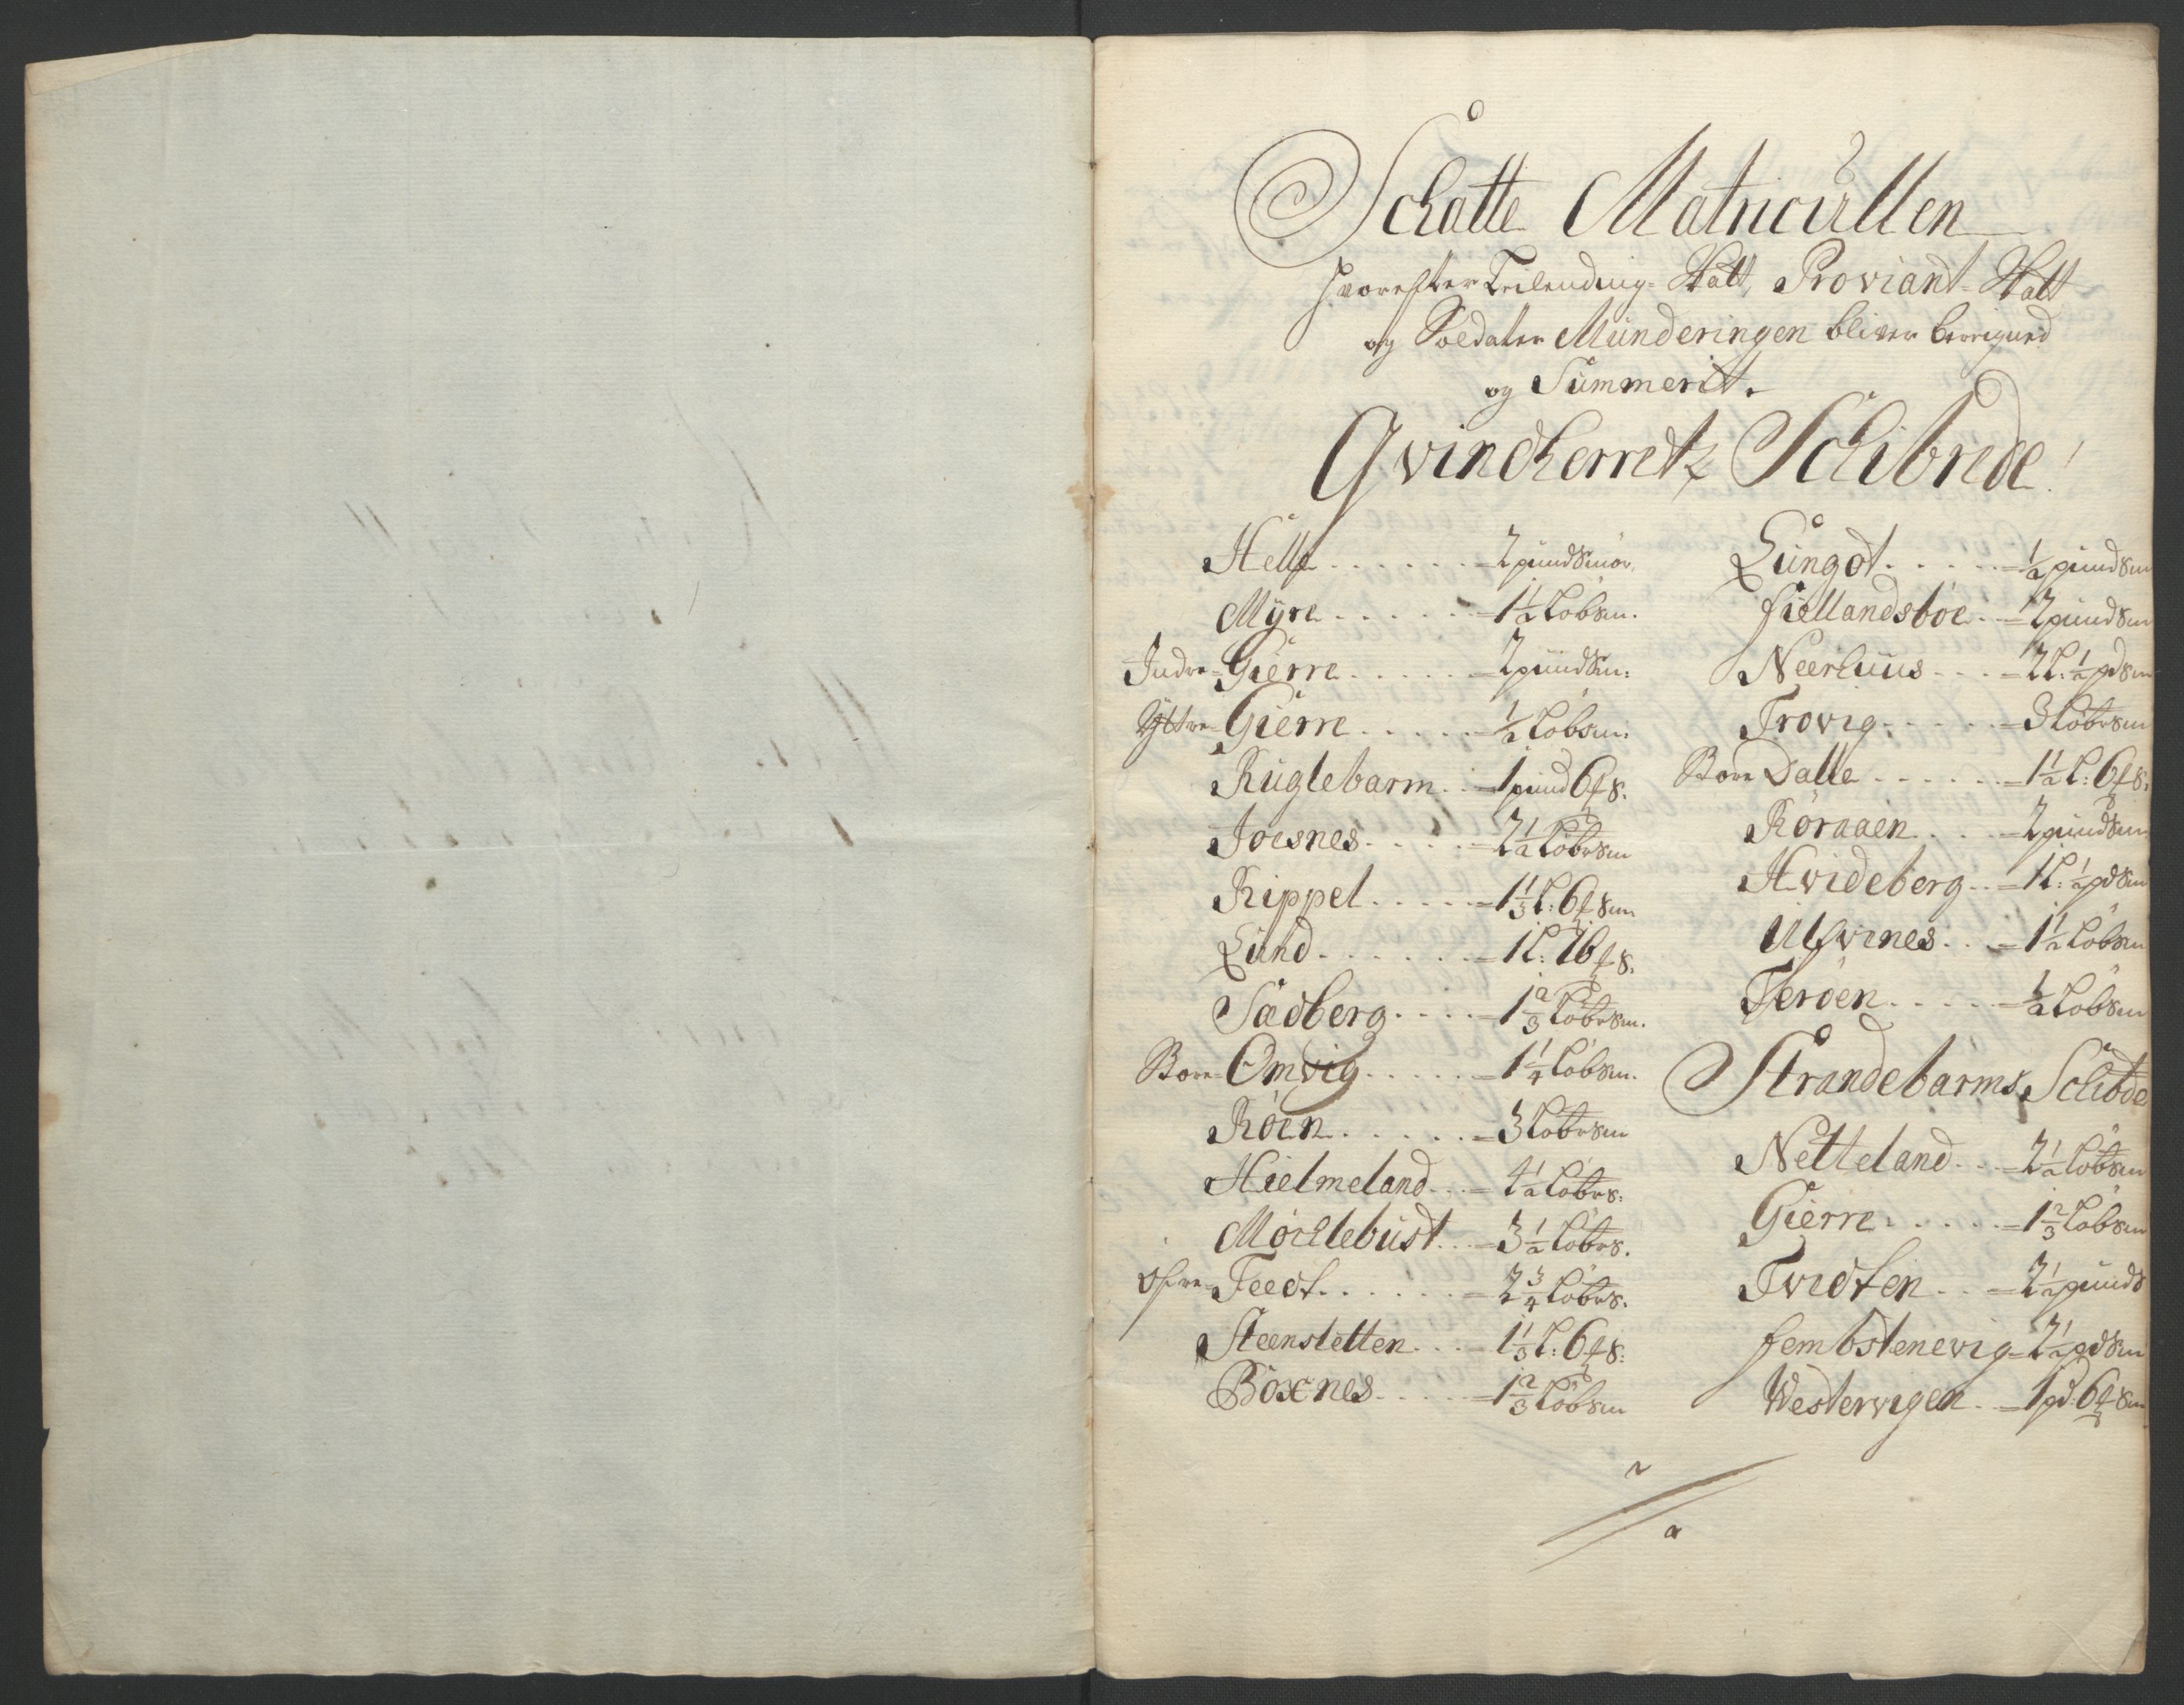 Schatte Matricullen
hvorefter Leilending-Skatt, Proviant-Skatt
og Soldater Münderingen bliver beregned
og Summerit.
Qvindherretz Schibrede!
Helle . . . . . . = 2 pund Smör.
Myre . . . . . = 1 1/2 Löbsm.
Indre = Gierre . . . . . = 2 pund Sm:
Yttre = Gierre . . . . . = 1/2 Löbsm:
Kuglebarm . = 1 pund 6 ʄ S.
Joesnes . . . . = 2 1/2 Löbrsm
Kippel . . . . . = 1 1/3 L: 6 ʄ Sm
Lund . . . . . . = 1 L: 16 ʄ S.
Sædberg . . . . = 1 2/3 Löbrsm.
Store = Omvig . . . . . = 1 1/4 Löbsm.
Röen . . . . . . = 3 Löbrsm
Hielmeland . . = 4 1/2 Löbrs:
Möchlebust . . = 3 1/2 Löbrs.
Øfre = Feedt . . . . . . = 2 3/4 Löbrs.
Steensletten . . = 1 1/3 L: 6 ʄ S:
Böxnes . . . . = 1 2/3 Löbsm
Lüngöt . . . . . = 1/2 pund Sm
fiellandsböe . . = 2 pund Sm
Neerhuus . . . = 2 L: 1/2 pd Sm
Trovig . . . . . = 3 Löbrsm
Store Dalle . . . . . = 1 1/2 L: 6 ʄ S.
Röraaen . . . = 2 pund Sm
Hvideberg . . = 1 L: 1/2 pd Sm
Ulfvines . . . = 1 1/2 Löbsm
Teröen . . . . . = 1/2 Löbsm
Strandebarms Schibde
Netteland . . . = 2 1/2 Löbsm
Gierre . . . . . = 1 2/3 Löbsm
Tvidten . . . = 2 1/2 pund S
fembstenevig = 2 1/2 pd Sm
Westervigen . . = 1 pd: 6 ʄ Sm